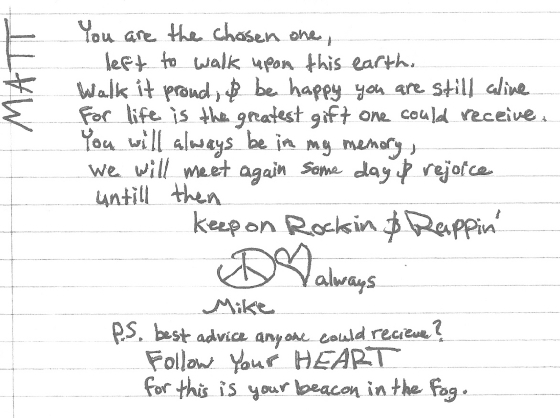 MATT
You are the chosen one,
left to walk upon this earth.
Walk it proud, & be happy you are still alive
For life is the greatest gift one could receive.
You will always be in my memory,
we will meet again some day & rejoice
untill then
keep on Rockin & Rappin'
always
Mike
P.S. best advice anyone could recieve?
Follow Your HEART
for this is your beacon in the fog.